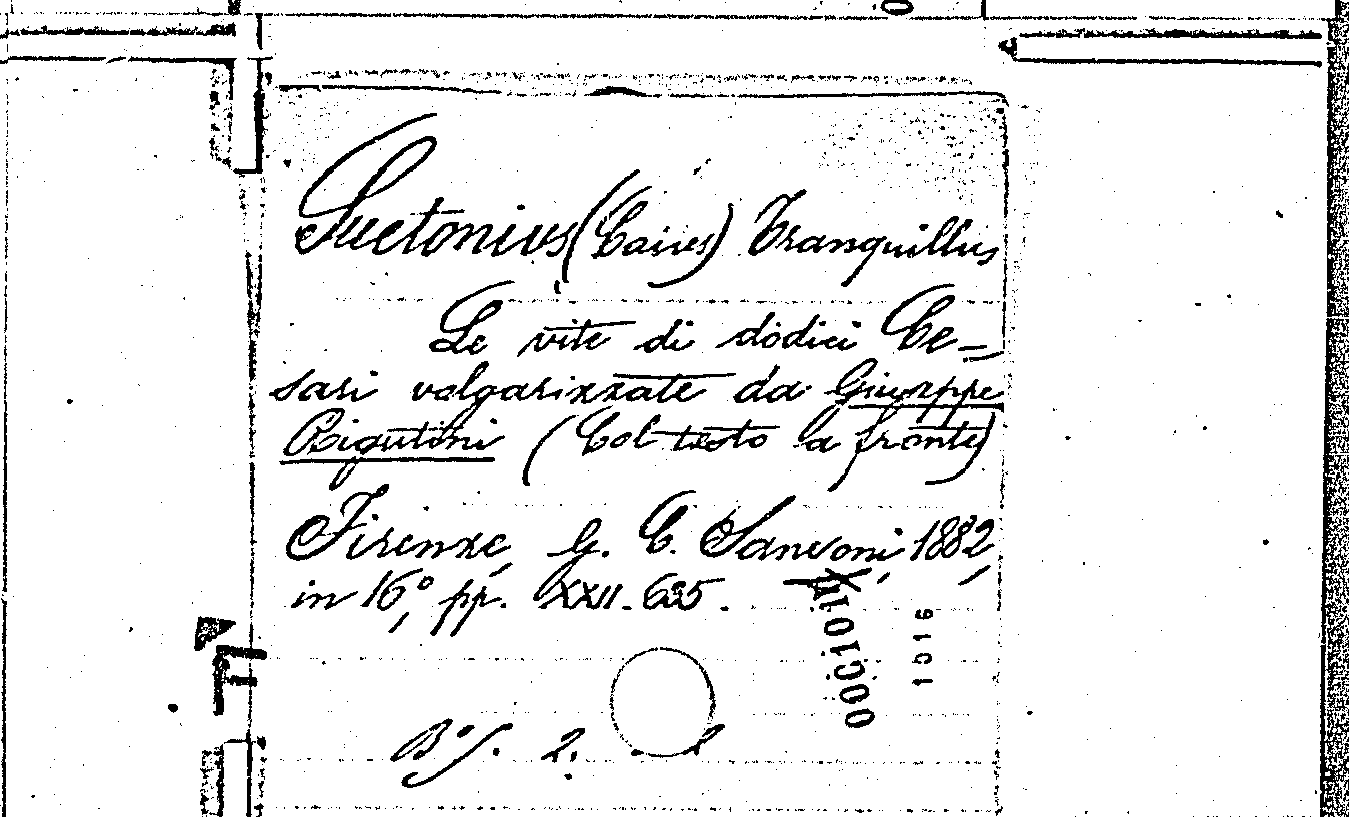 Suetonius (Caius) Tranquillus
Le vite di dodici Ce=
sari volgarizzate da Giuseppe
Rigutini (Col testo a fronte)
Firenze, G. C. Sansoni, 1882,
in 16°, pp. XXII-635.
1016
B. 2.